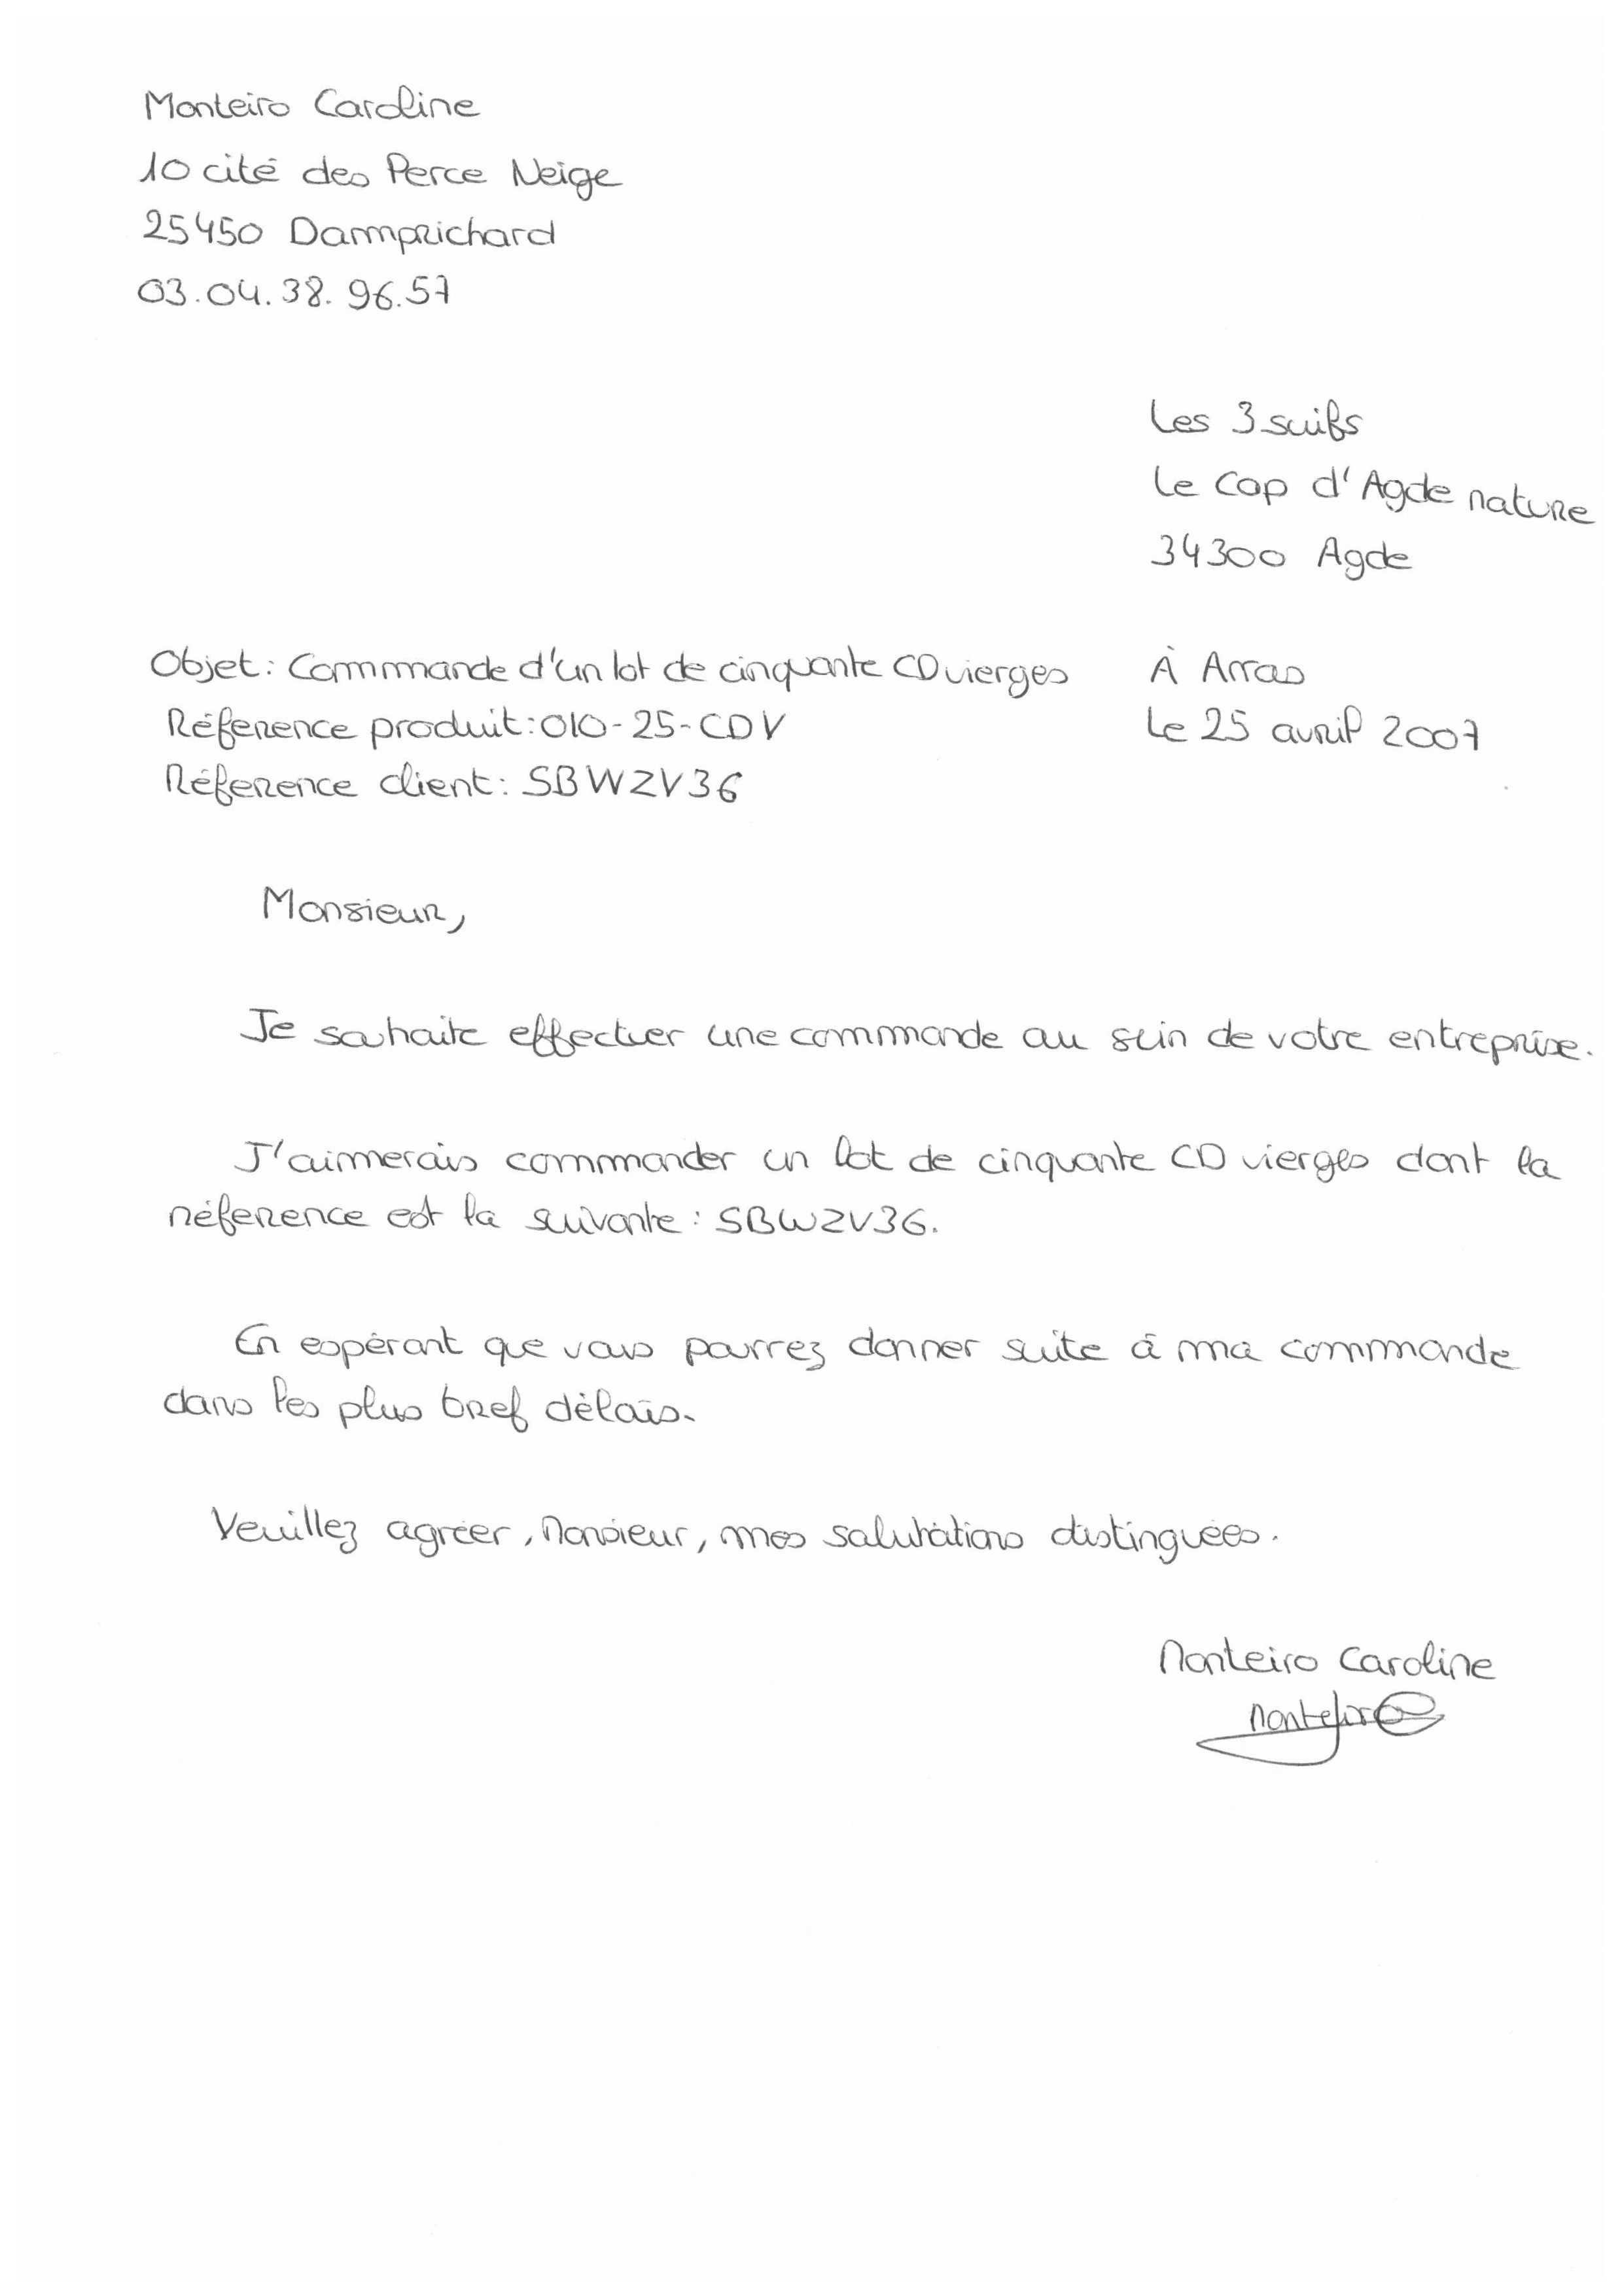 Monteiro Caroline
10 cité des Perce Neige
25450 Damprichard
03.04.38.96.57
Les 3 suifs
Le Cap d'Agde nature
34300 Agde
Objet : Commande d'un lot de cinquante CD vierges
À Arras
Réference produit : 010-25-CDV
Le 25 avril 2007
Réference client : SBWZV36
Monsieur,
Je souhaite effectuer une commande au sein de votre entreprise.
J'aimerais commander un lot de cinquante CD vierges dont la
référence est la suivante : SBWZV36.
En espérant que vous pourrez donner suite à ma commande
dans les plus bref délais.
Veuillez agréer, Monsieur, mes salutations distinguées.
Monteiro Caroline
Monteiro